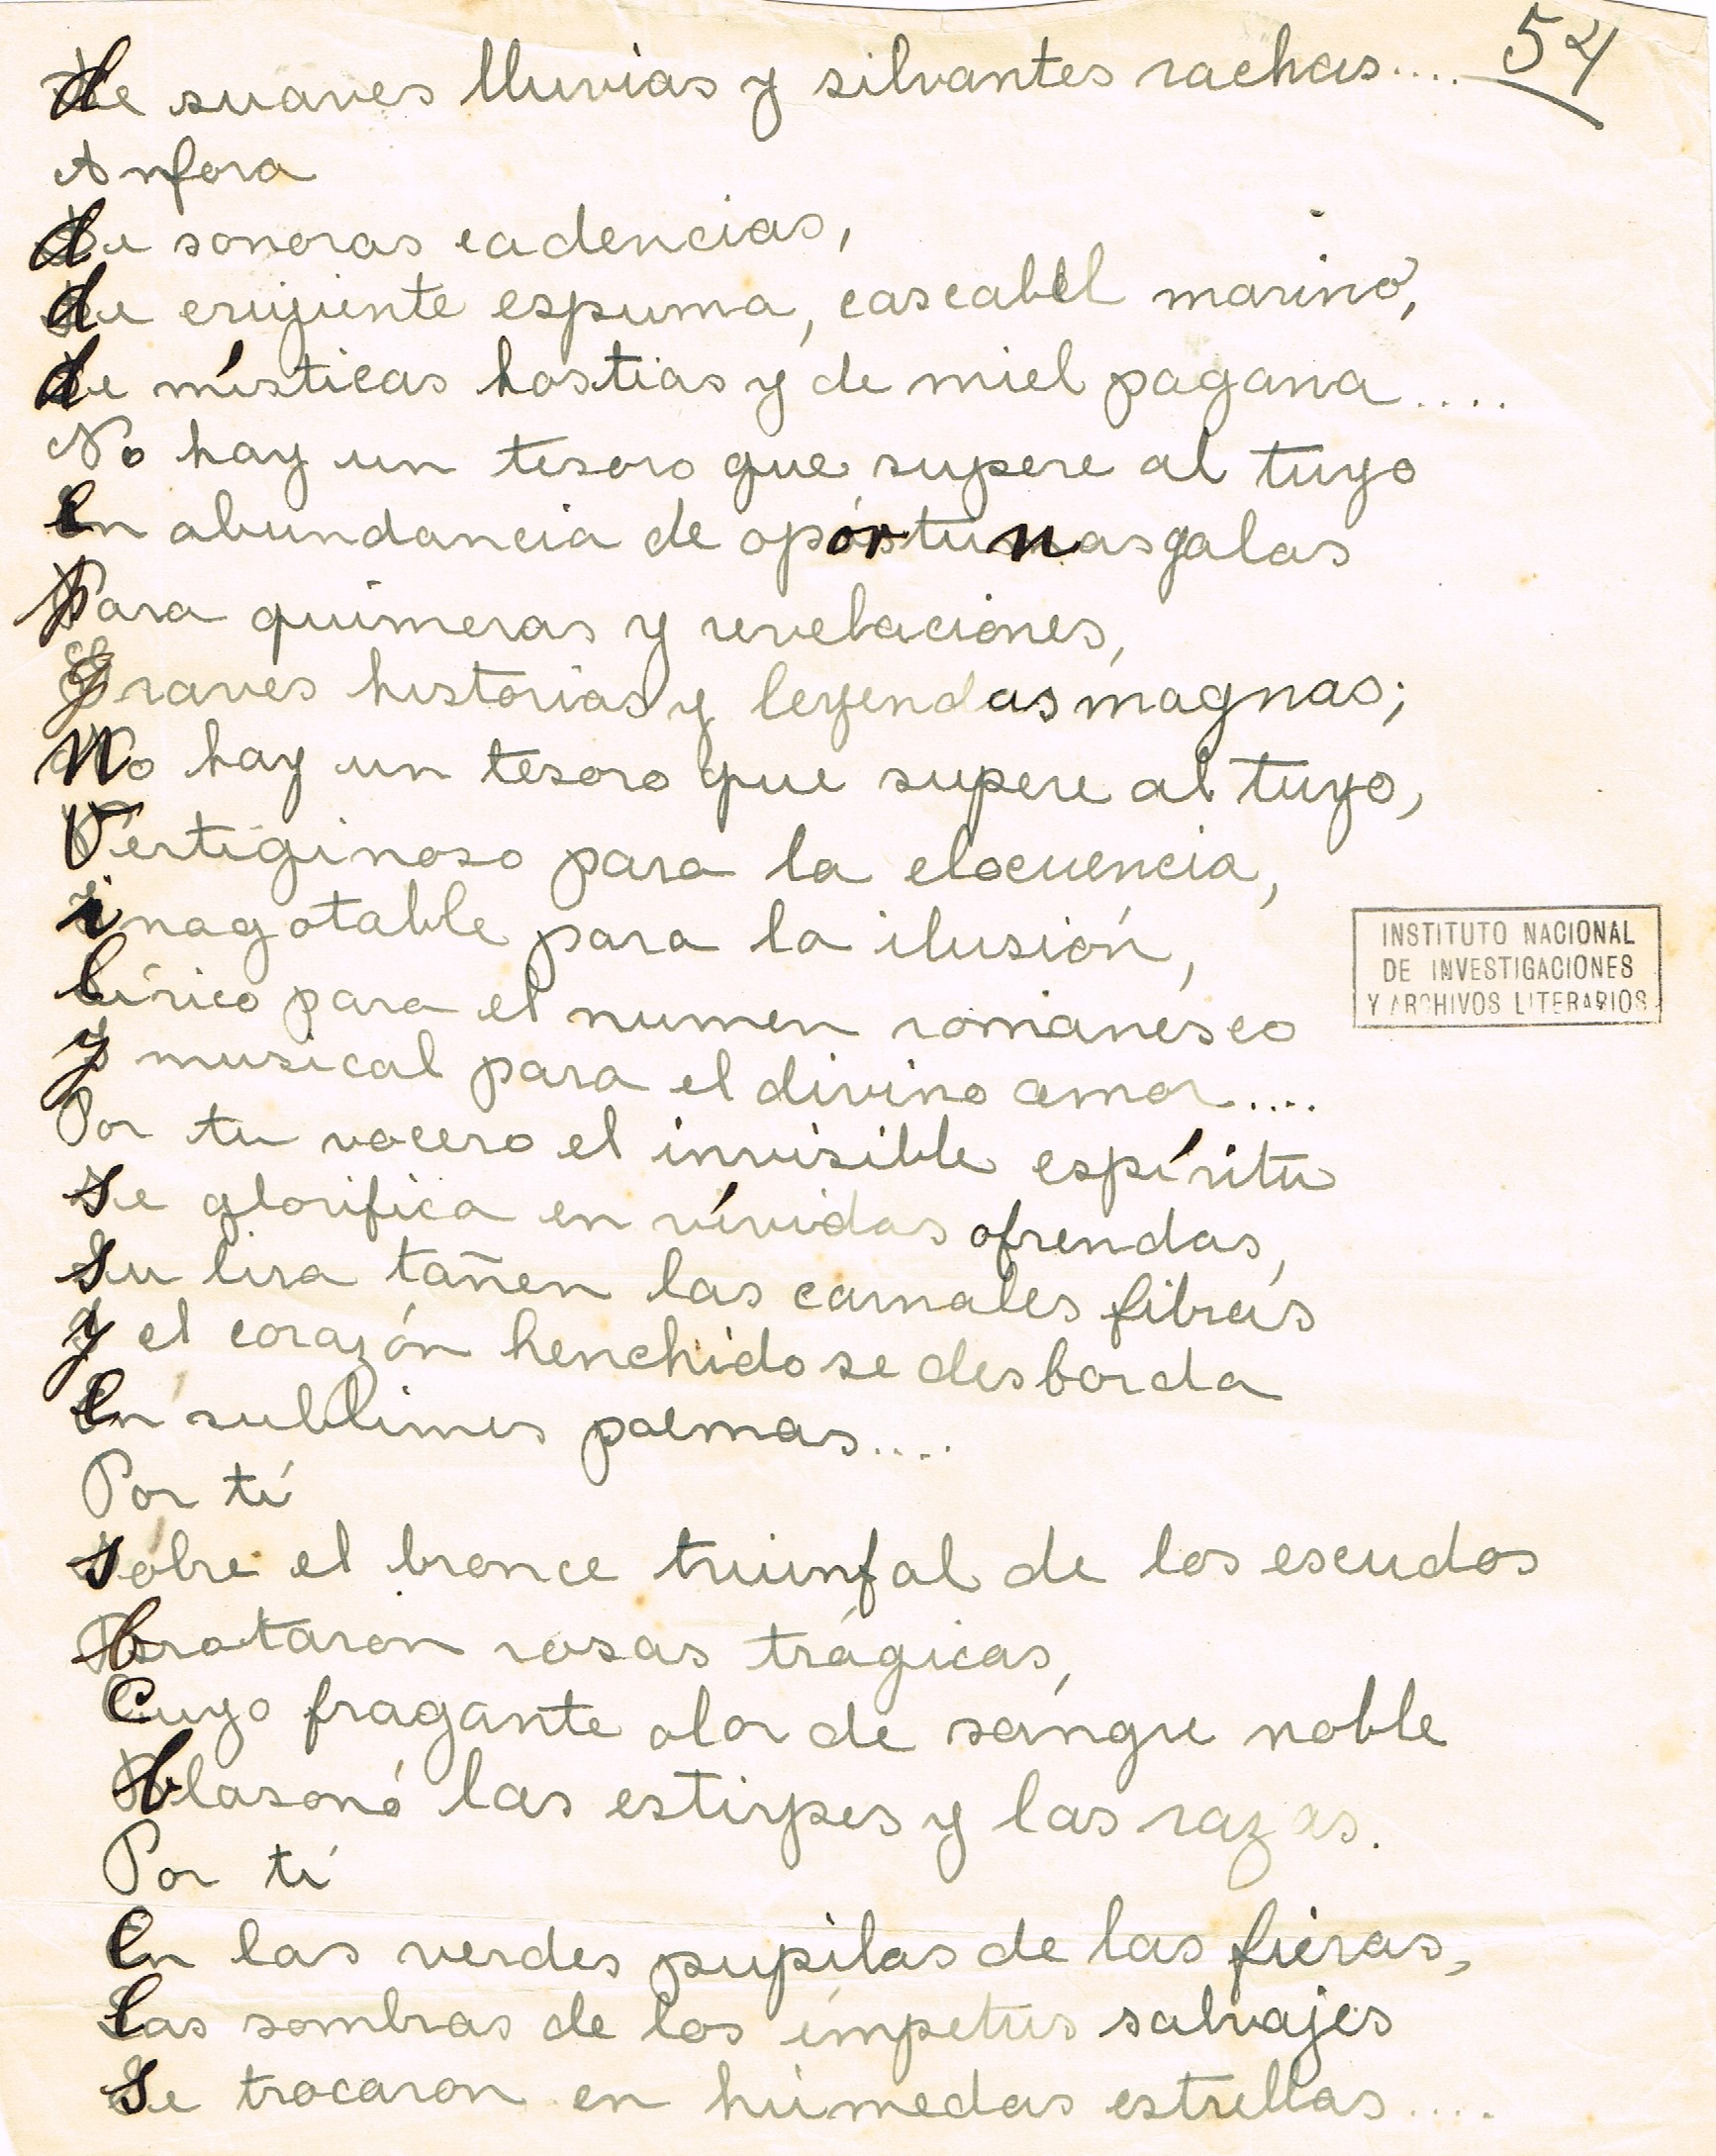 54
de suaves lluvias y silvantes rachas....
Anfora
de sonoras cadencias,
de crujiente espuma, cascabel marino,
de místicas hostias y de miel pagana....
No hay un tesoro que supere al tuyo
en abundancia de oportunas galas
para quimeras y revelaciones,
graves historias y leyendas magnas;
no hay un tesoro que supere al tuyo,
vertiginoso para la elocuencia,
inagotable para la ilusión,
lírico para el numen romanesco
y musical para el divino amor....
Por tu vocero el invisible espíritu
se glorifica en vívidas ofrendas,
su lira tañen las carnales fibras
y el corazón henchido se desborda
en sublimes poemas....
Por tí
sobre el bronce triunfal de los escudos
brotaron rosas trágicas,
cuyo fragante olor de sangre noble
blasonó las estirpes y las razas.
Por tí
en las verdes pupilas de las fieras,
las sombras de los ímpetus salvajes
se trocaron en húmedas estrellas....
INSTITUTO NACIONAL
DE INVESTIGACIONES
Y ARCHIVOS LITERARIOS